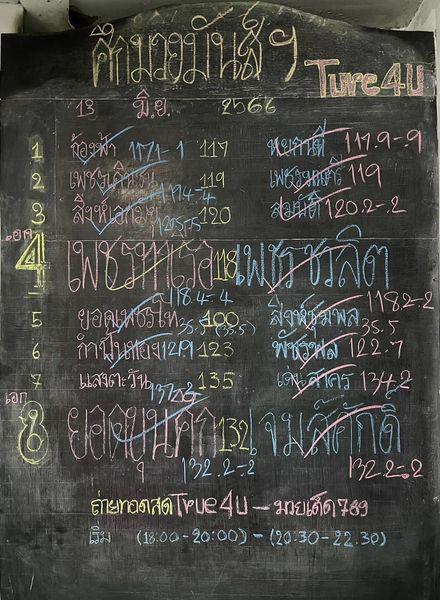 ศึกมวยมันส์ฯ
True4U
13 มิ.ย 2566
1 ล้องฟ้า 117.1-1 117 หยกมณี 117.9-.9
2 119 119
3 สิงห์เอกมวย 120 สมบัติ 120.2-.2
เอก 4 118 เพชรชวลิต
118.4-.4 118.2-.2
5 ยอดเพชรโท 100 สิงห์ชุมพล
35.5
6 กำปั่นทอง 123 พัชรพล 122.7
7 แสงตะวัน 135 เด่นสาคร 134.2
เอก 8 ยอดขุนศึก 132 เจมส์ศักดิ์
132.2-.2 132.2-.2
ถ่ายทอดสด True4U - มวยเด็ด789
เริ่ม (18:00-20:00) - (20.30-22.30)